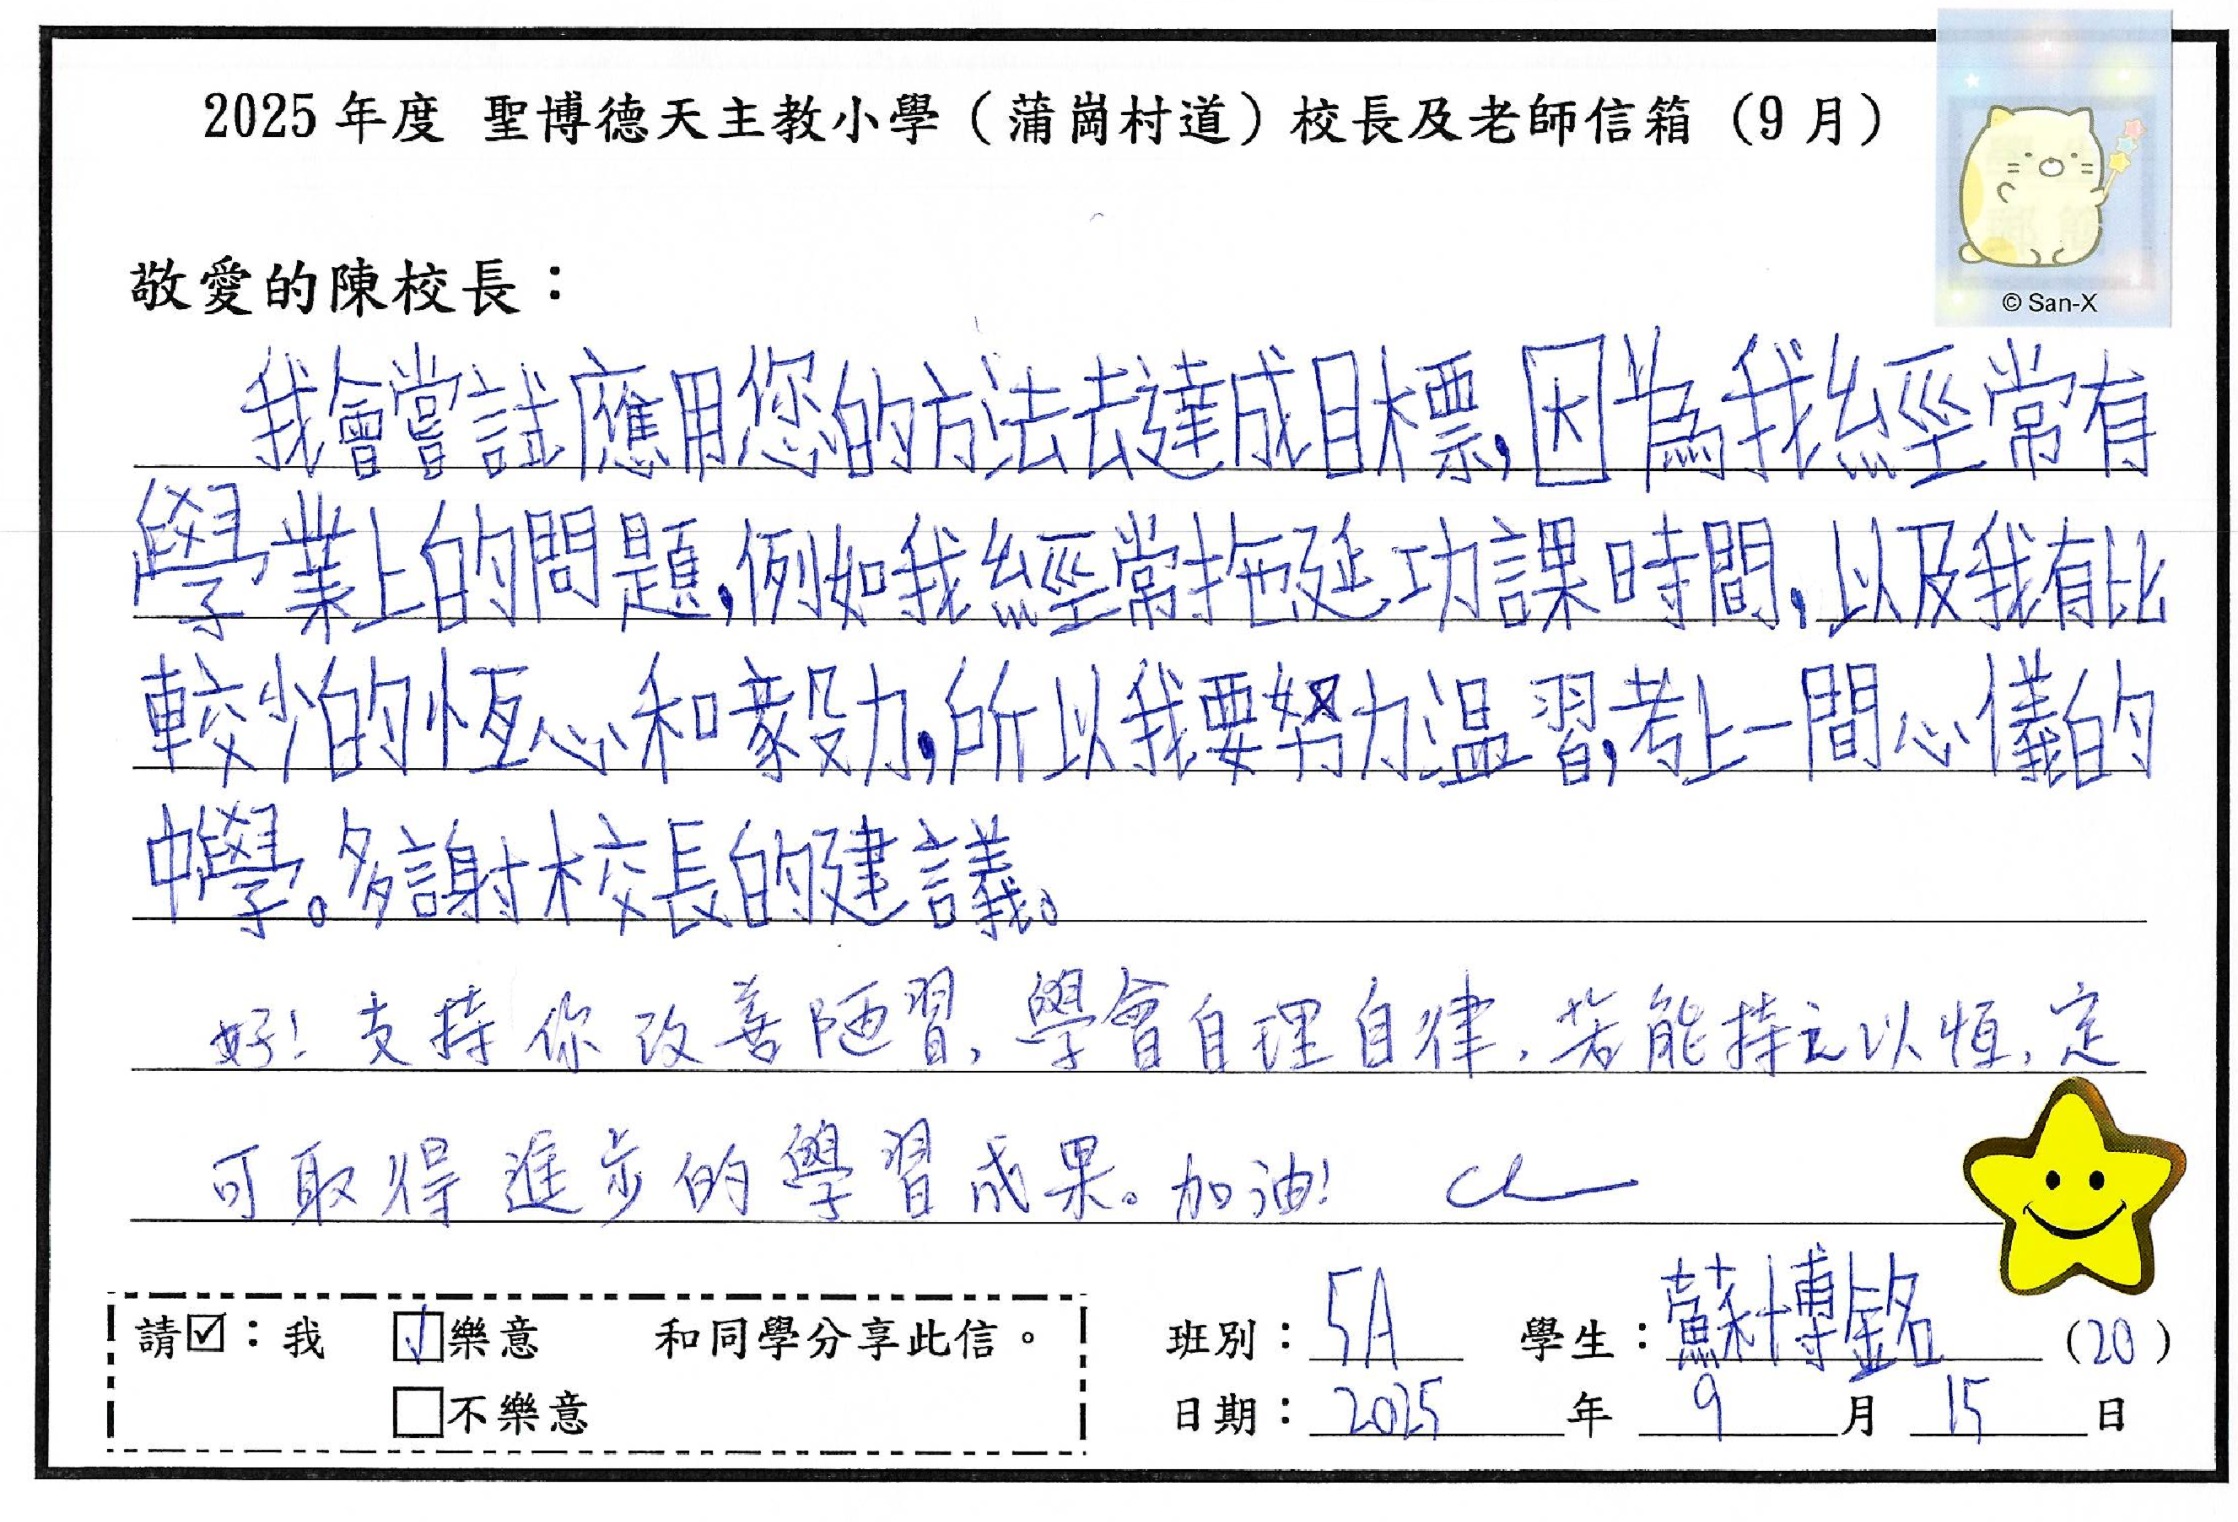 2025年度 聖博德天主教小學（蒲崗村道）校長及老師信箱（9月）
© San-X
敬愛的陳校長：
我會嘗試應用您的方法去達成目標,因為我經常有
學業上的問題,例如我經常拖延功課時間,以及我有比
較少的恆心和毅力,所以我要努力溫習,考上一間心儀的
中學。多謝校長的建議。
好!支持你改善陋習,學會自理自律,若能持之以恆,定
可取得進步的學習成果。加油!
請☑：我 ☑樂意 和同學分享此信。
□不樂意
班別：5A 學生：蘇博銘 (20)
日期：2025年9月15日